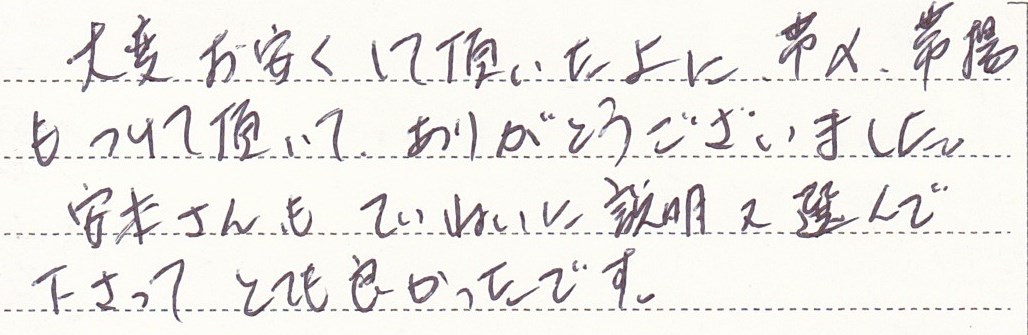 大変お安くして頂いた上に、帯〆、帯揚
もつけて頂いて、ありがとうございました。
安本さんも ていねいに説明又選んで
下さって とても良かったです。